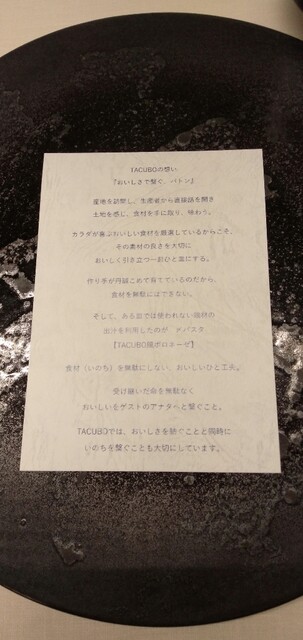 TACUBOの想い
『おいしさで繋ぐ、バトン』
産地を訪問し、生産者から直接話を聞き
土地を感じ、食材を手に取り、味わう。
カラダが喜ぶおいしい食材を厳選しているからこそ、
その素材の良さを大切に
おいしく引き立つ一皿ひと皿にする。
作り手が丹精こめて育てているのだから、
食材を無駄にはできない。
そして、ある皿では使われない端材の
出汁を利用したのが
【TACUBO風ボロネーゼ】
食材（いのち）を無駄にしない、おいしいひと工夫。
受け継いだ命を無駄なく
おいしいをゲストのアナタへと繋ぐこと。
TACUBOでは、おいしさを紡ぐことと同時に
いのちを繋ぐことも大切にしています。